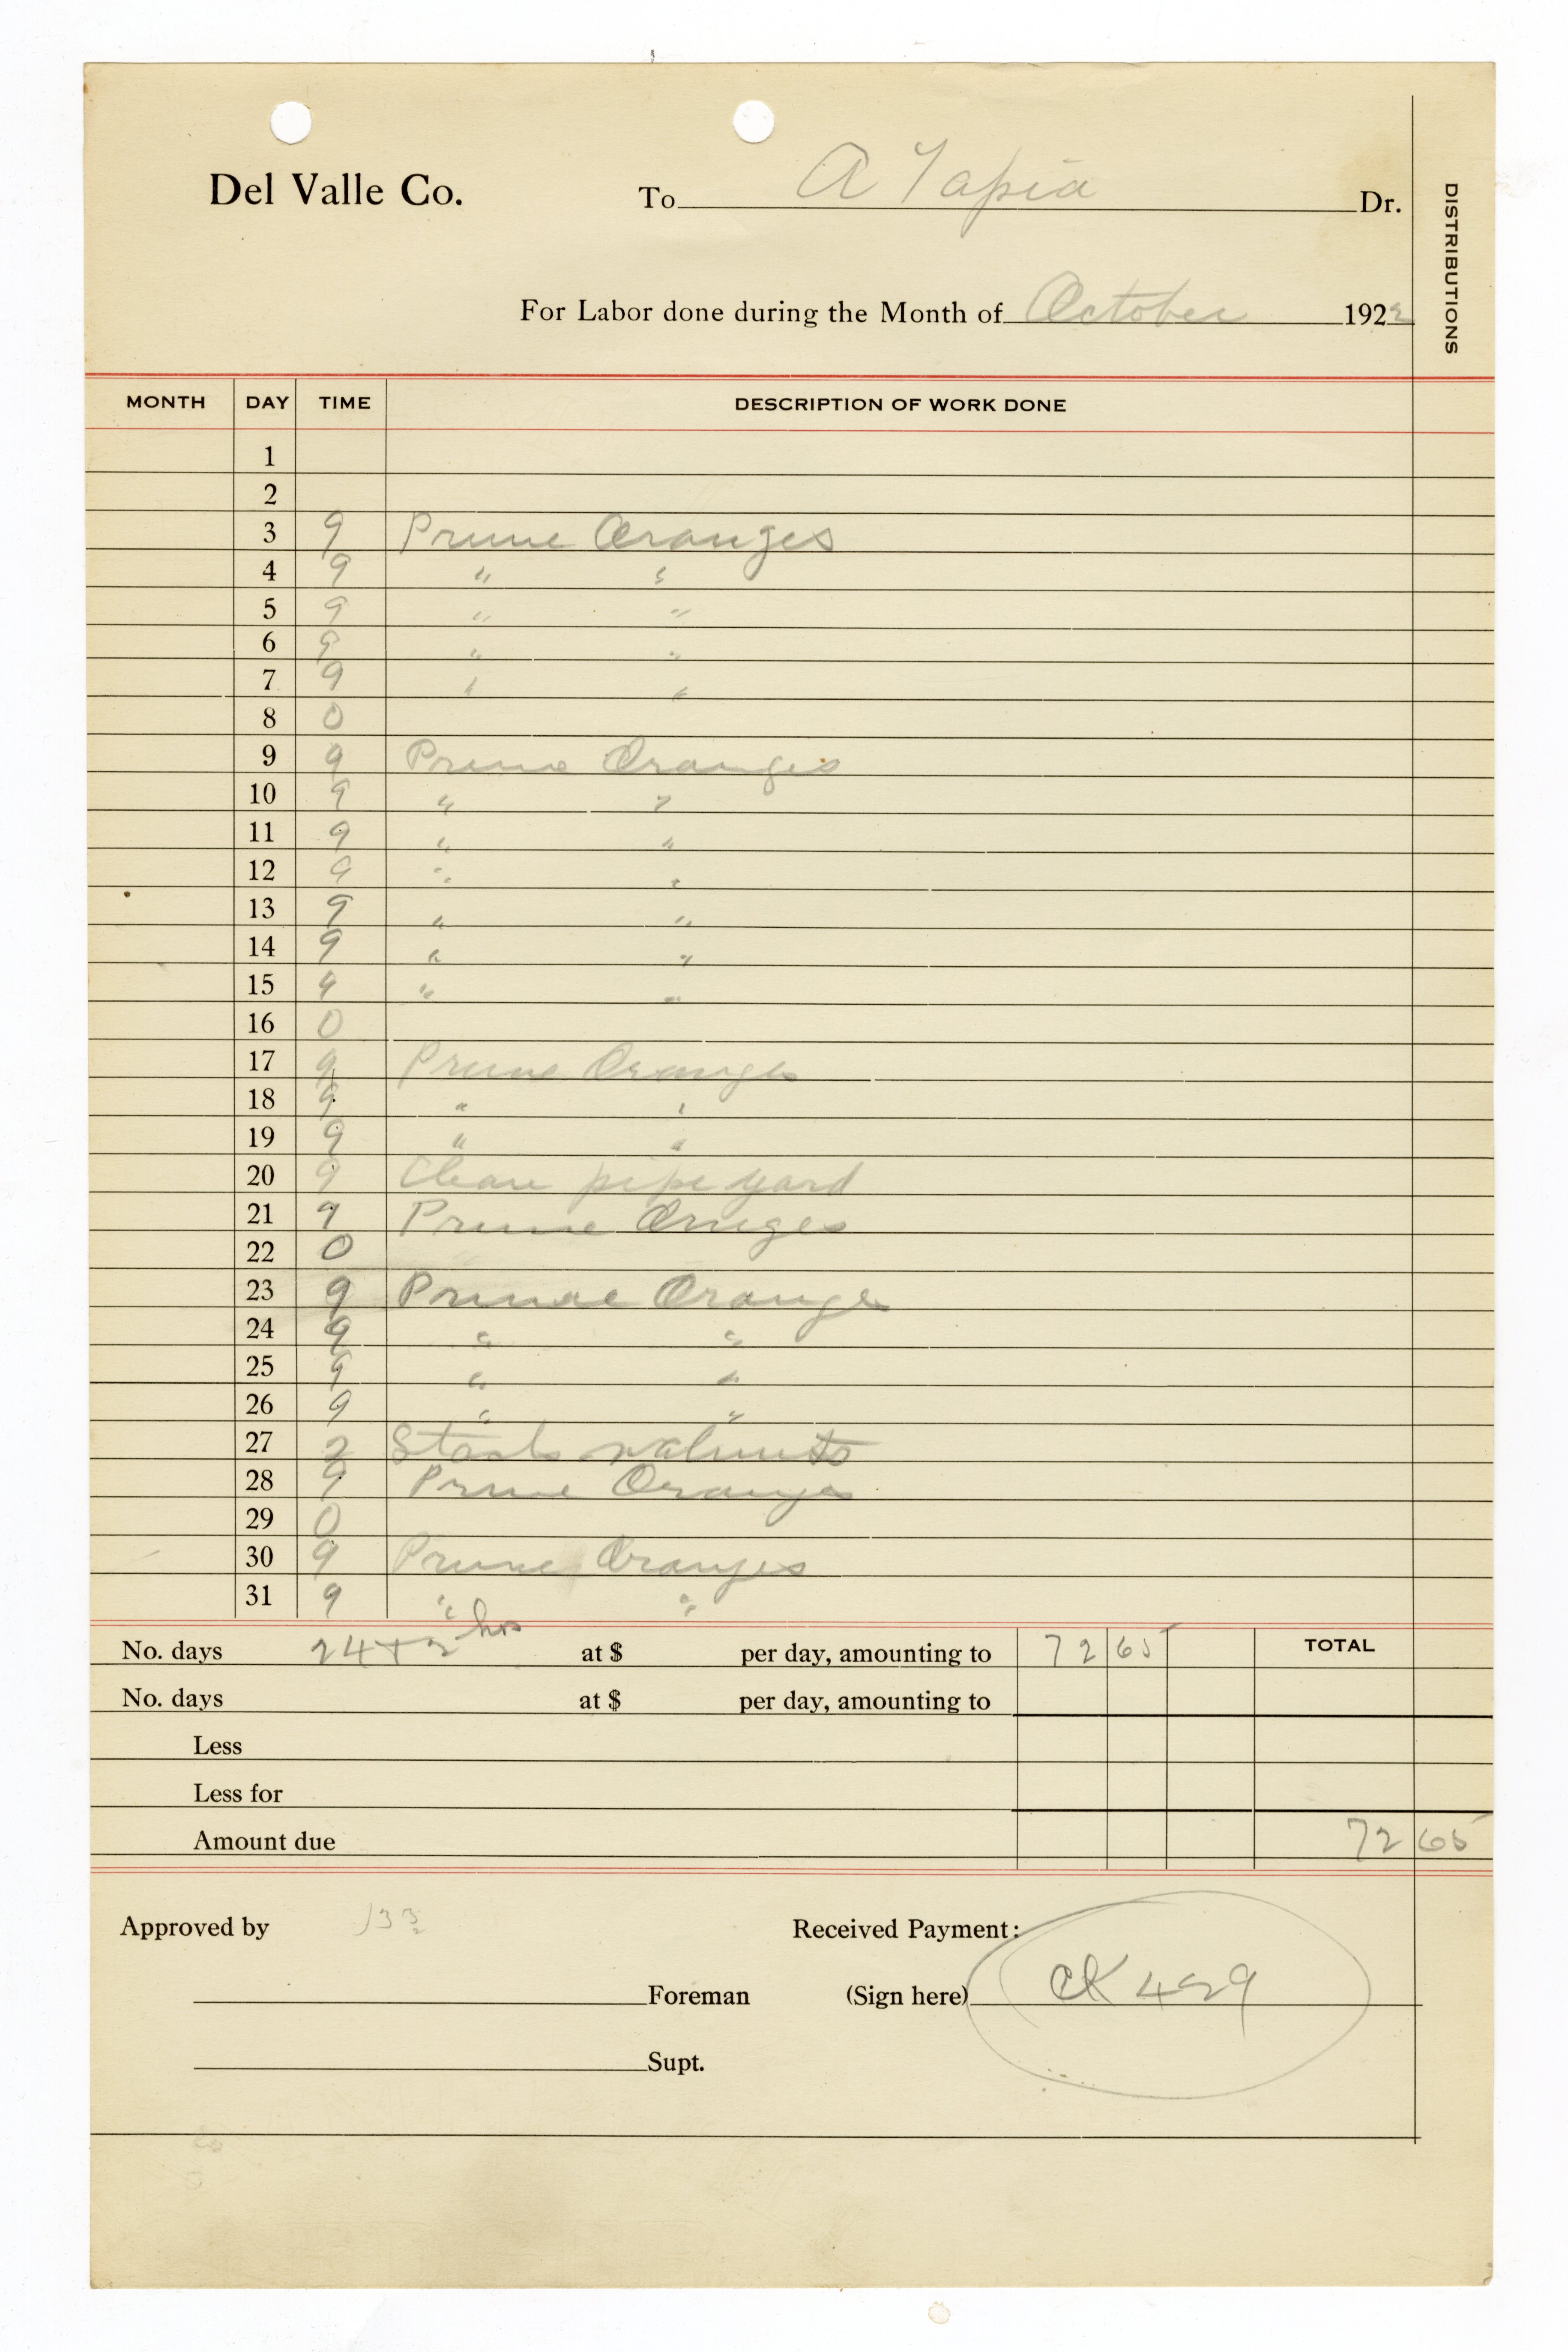 Del Valle Co. To A Tapia Dr.
DISTRIBUTIONS
For Labor done during the Month of October 1922
MONTH DAY TIME DESCRIPTION OF WORK DONE
1
2
3 9 Prune Oranges
4 9 " "
5 9 " "
6 9 " "
7 9 " "
8 0
9 9 Prune Oranges
10 9 " "
11 9 " "
12 9 " "
13 9 " "
14 9 " "
15 9 " "
16 0
17 9 Prune Oranges
18 9 " "
19 9 " "
20 9 Clean pipe yard
21 9 Prune Oranges
22 0
23 9 Prunae Orange
24 9 " "
25 9 " "
26 9 " "
27 2 walnuts
28 9 Prune Oranges
29 0
30 9 Prune Oranges
31 9 " "
No. days 24 + 2 hrs at $ per day, amounting to 72 65 TOTAL
No. days at $ per day, amounting to
Less
Less for
Amount due 72 65
Approved by Received Payment:
Foreman (Sign here) CK 429
Supt.